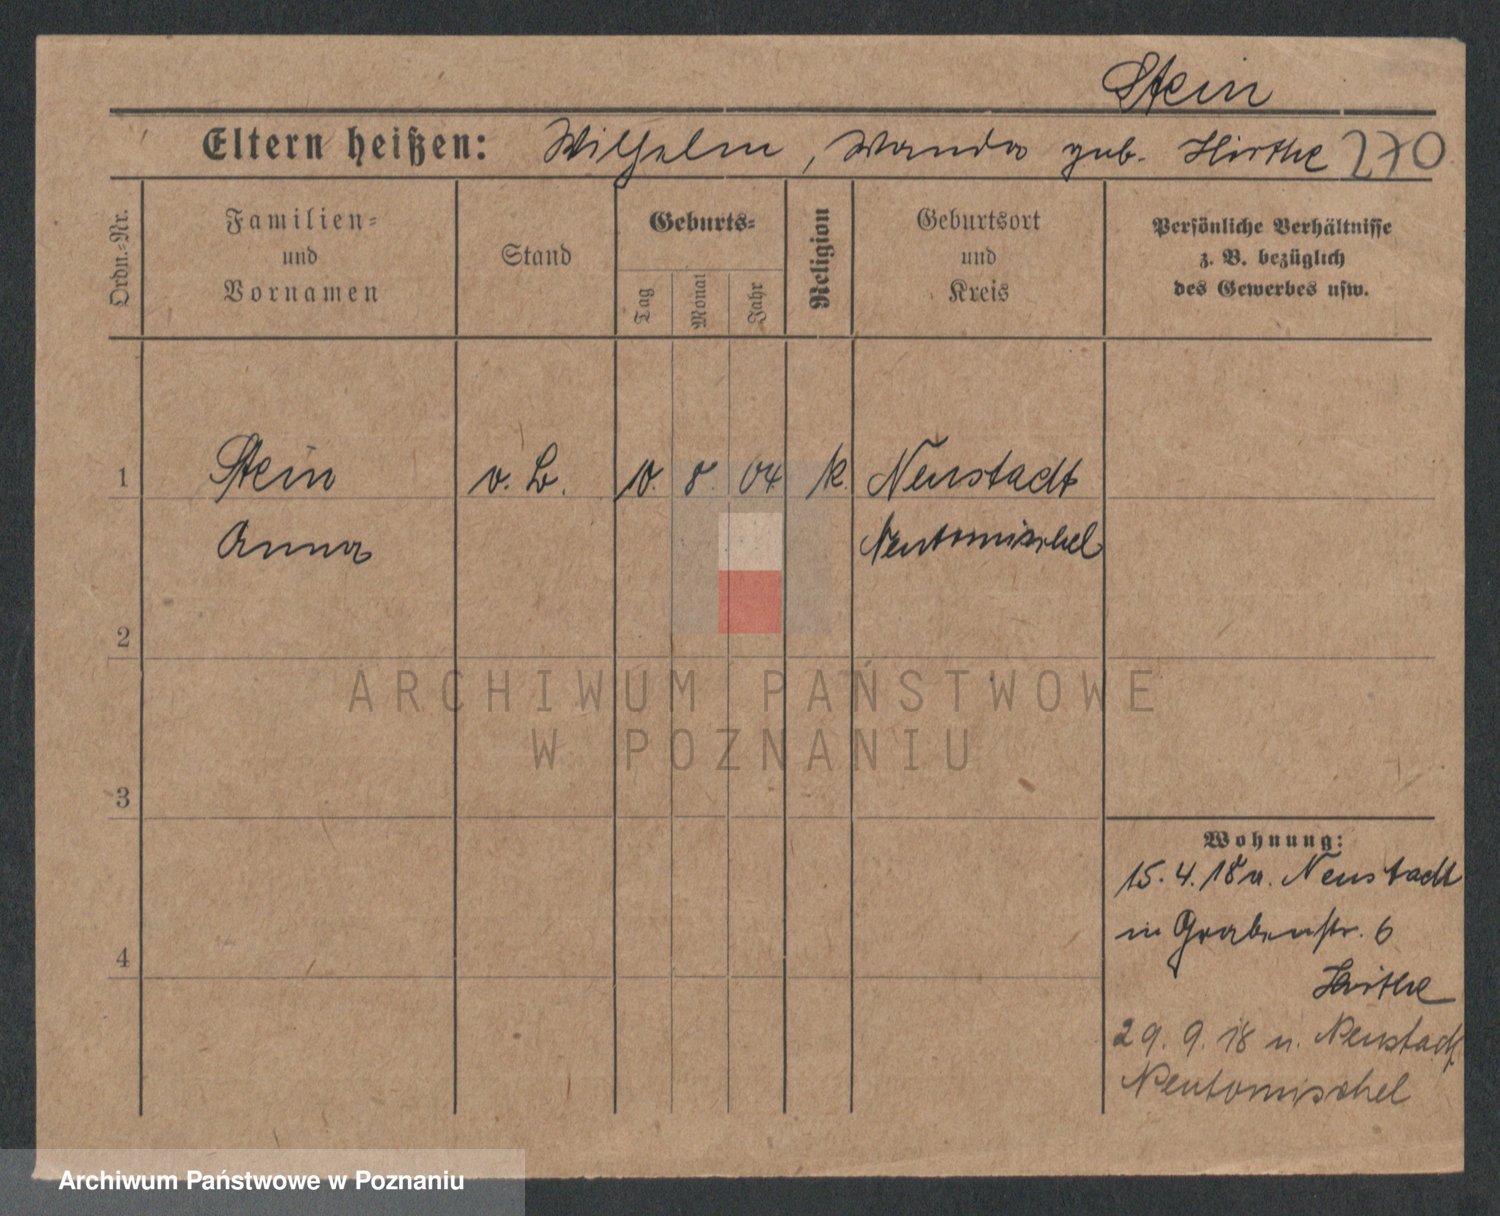 Stein
Eltern heißen: Wilhelm, Wanda geb. Hirthe 270
Ordn.=Nr.
Familien=
und
Vornamen
Stand
Geburts=
Tag
Monat
Jahr
Religion
Geburtsort
und
Kreis
Persönliche Verhältnisse
z. B. bezüglich
des Gewerbes usw.
1 Stein v. B. 10. 8. 04 k. Neustadt
Anna Neutomischel
2
ARCHIWUM PAŃSTWOWE
W POZNANIU
3
Wohnung:
15. 4. 18 v. Neustadt
in Grabenstr. 6
4
Hirthe
29. 9. 18 n. Neustadt
Neutomischel
Archiwum Państwowe w Poznaniu